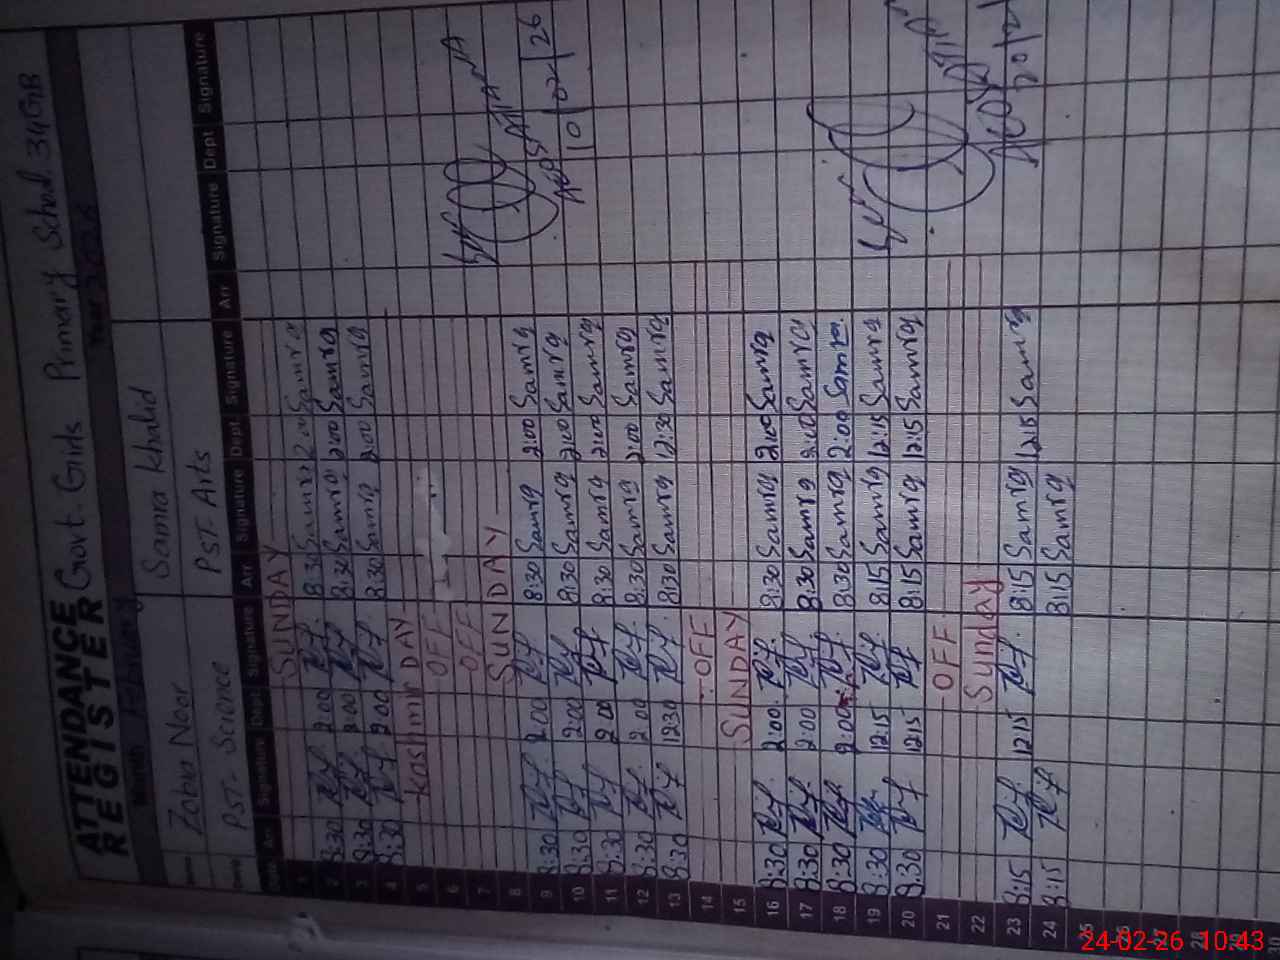 ATTENDANCE REGISTER Govt. Girls Primary School. 34GB
Month February Year 2026
Zobia Noor Samra Khalid
PST- Science PST. Arts
Date Arr Signature Dept Signature Arr Signature Dept. Signature Arr Signature Dept Signature
1 SUNDAY
2 8:30 2:00 8:30 Samra 2:00 Samra
3 8:30 2:00 8:30 Samra 2:00 Samra
4 8:30 2:00 8:30 Samra 2:00 Samra
5 Kashmir DAY
6 OFF
7 OFF
8 SUNDAY
9 8:30 2:00 8:30 Samra 2:00 Samra
10 8:30 2:00 8:30 Samra 2:00 Samra
11 8:30 2:00 8:30 Samra 2:00 Samra
12 8:30 2:00 8:30 Samra 2:00 Samra
13 8:30 12:30 8:30 Samra 12:30 Samra
10/02/26
14 OFF
15 SUNDAY
16 8:30 2:00 8:30 Samra 2:00 Samra
17 8:30 2:00 8:30 Samra 2:00 Samra
18 8:30 2:00 8:30 Samra 2:00 Samra
19 8:30 12:15 8:15 Samra 12:15 Samra
20 8:30 12:15 8:15 Samra 12:15 Samra
21 OFF
22 Sunday
23 8:15 12:15 8:15 Samra 12:15 Samra
24 8:15 8:15 Samra
25
26
27
28
29
30
24-02-26 10:43